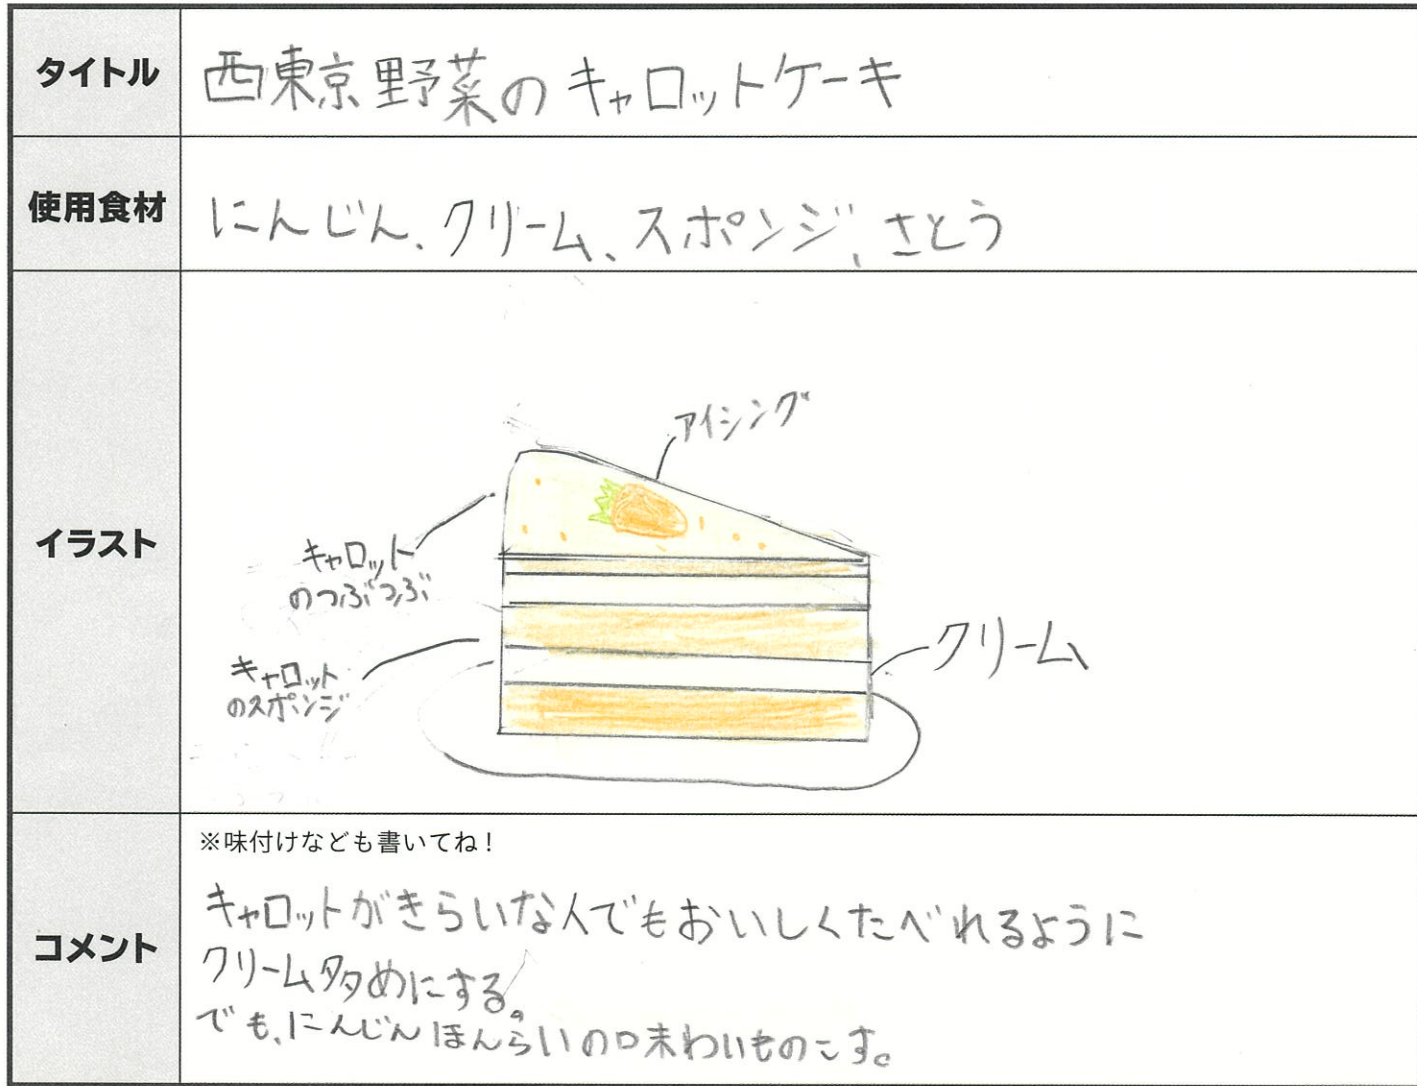 タイトル
西東京野菜のキャロットケーキ
使用食材
にんじん、クリーム、スポンジ、さとう
イラスト
アイシング
キャロット
のつぶつぶ
キャロット
のスポンジ
クリーム
コメント
※味付けなども書いてね！
キャロットがきらいな人でもおいしくたべれるように
クリーム多めにする。
でも、にんじんほんらいの味わいものこす。